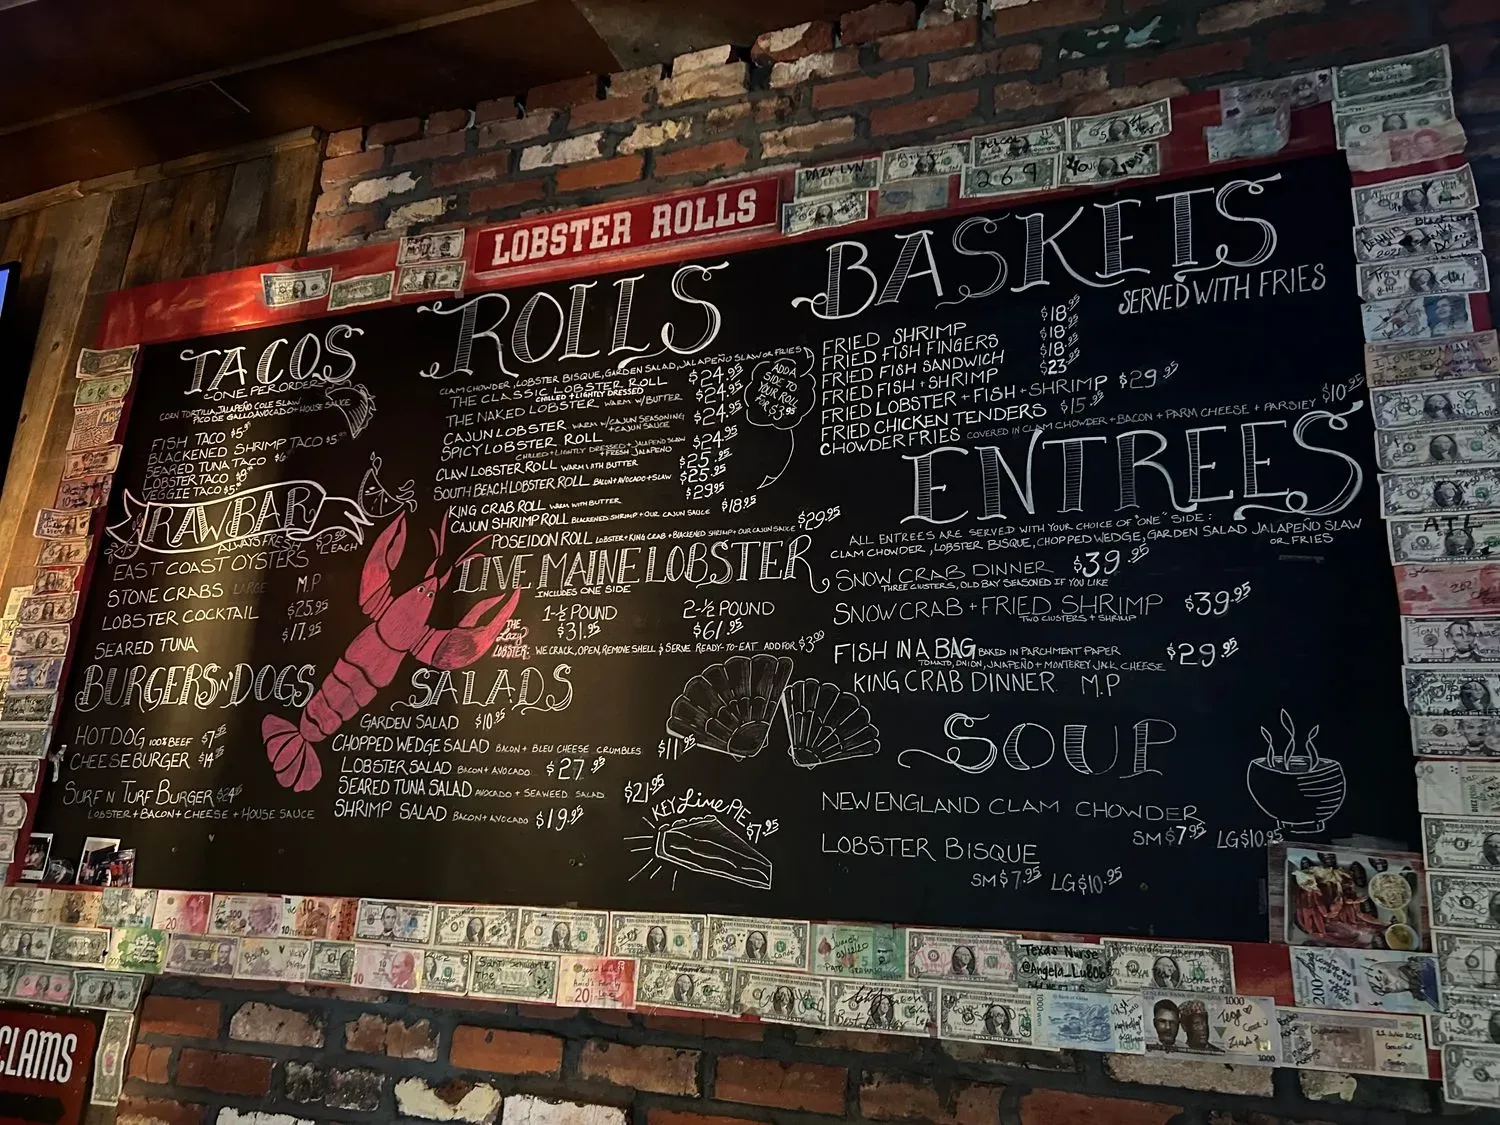 LOBSTER ROLLS
TACOS
ONE PER ORDER
CORN TORTILLA, JALAPEÑO COLE SLAW
PICO DE GALLO, AVOCADO + HOUSE SAUCE
FISH TACO $5
BLACKENED SHRIMP TACO $5
SEARED TUNA TACO $6
LOBSTER TACO $8
VEGGIE TACO $5
RAW BAR
ALWAYS FRESH
EAST COAST OYSTERS $2.50 EACH
STONE CRABS LARGE M.P
LOBSTER COCKTAIL $25.95
SEARED TUNA $17.95
BURGERS N' DOGS
HOT DOG 100% BEEF $7
CHEESEBURGER $14
SURF N TURF BURGER $24
LOBSTER + BACON + CHEESE + HOUSE SAUCE
ROLLS
CLAM CHOWDER, LOBSTER BISQUE, GARDEN SALAD, JALAPEÑO SLAW OR FRIES
ADD A
SIDE TO
YOUR ROLL
FOR $3.95
THE CLASSIC LOBSTER ROLL $24.95
CHILLED + LIGHTLY DRESSED
THE NAKED LOBSTER WARM W/BUTTER $24.95
CAJUN LOBSTER WARM W/CAJUN SEASONING + CAJUN SAUCE $24.95
SPICY LOBSTER ROLL CHILLED + LIGHTLY DRESSED + JALAPEÑO SLAW + FRESH JALAPEÑO $24.95
CLAW LOBSTER ROLL WARM WITH BUTTER $25.95
SOUTH BEACH LOBSTER ROLL BACON + AVOCADO + SLAW $25.95
KING CRAB ROLL WARM WITH BUTTER $29.95
CAJUN SHRIMP ROLL BLACKENED SHRIMP + OUR CAJUN SAUCE $18.95
POSEIDON ROLL LOBSTER + KING CRAB + BLACKENED SHRIMP + OUR CAJUN SAUCE $29.95
LIVE MAINE LOBSTER
INCLUDES ONE SIDE
1-½ POUND 2-½ POUND
$31.95 $61.95
THE Lazy LOBSTER: WE CRACK, OPEN, REMOVE SHELL & SERVE READY-TO-EAT ADD FOR $3.00
SALADS
GARDEN SALAD $10.95
CHOPPED WEDGE SALAD BACON + BLEU CHEESE CRUMBLES $11.95
LOBSTER SALAD BACON + AVOCADO $27.95
SEARED TUNA SALAD AVOCADO + SEAWEED SALAD $21.95
SHRIMP SALAD BACON + AVOCADO $19.95
KEY Lime PIE
$7.95
BASKETS
SERVED WITH FRIES
FRIED SHRIMP $18.95
FRIED FISH FINGERS $18.95
FRIED FISH SANDWICH $18.95
FRIED FISH + SHRIMP $23.95
FRIED LOBSTER + FISH + SHRIMP $29.95
FRIED CHICKEN TENDERS $15.95
CHOWDER FRIES COVERED IN CLAM CHOWDER + BACON + PARM CHEESE + PARSLEY $10.95
ENTREES
ALL ENTREES ARE SERVED WITH YOUR CHOICE OF "ONE" SIDE:
CLAM CHOWDER, LOBSTER BISQUE, CHOPPED WEDGE, GARDEN SALAD JALAPEÑO SLAW
OR FRIES
SNOW CRAB DINNER $39.95
THREE CLUSTERS, OLD BAY SEASONED IF YOU LIKE
SNOW CRAB + FRIED SHRIMP $39.95
TWO CLUSTERS + SHRIMP
FISH IN A BAG BAKED IN PARCHMENT PAPER $29.95
TOMATO, ONION, JALAPEÑO + MONTEREY JACK CHEESE
KING CRAB DINNER M.P
SOUP
NEW ENGLAND CLAM CHOWDER
SM $7.95 LG $10.95
LOBSTER BISQUE
SM $7.95 LG $10.95
DAZY LYN
269
Texas Nurse
CLAMS